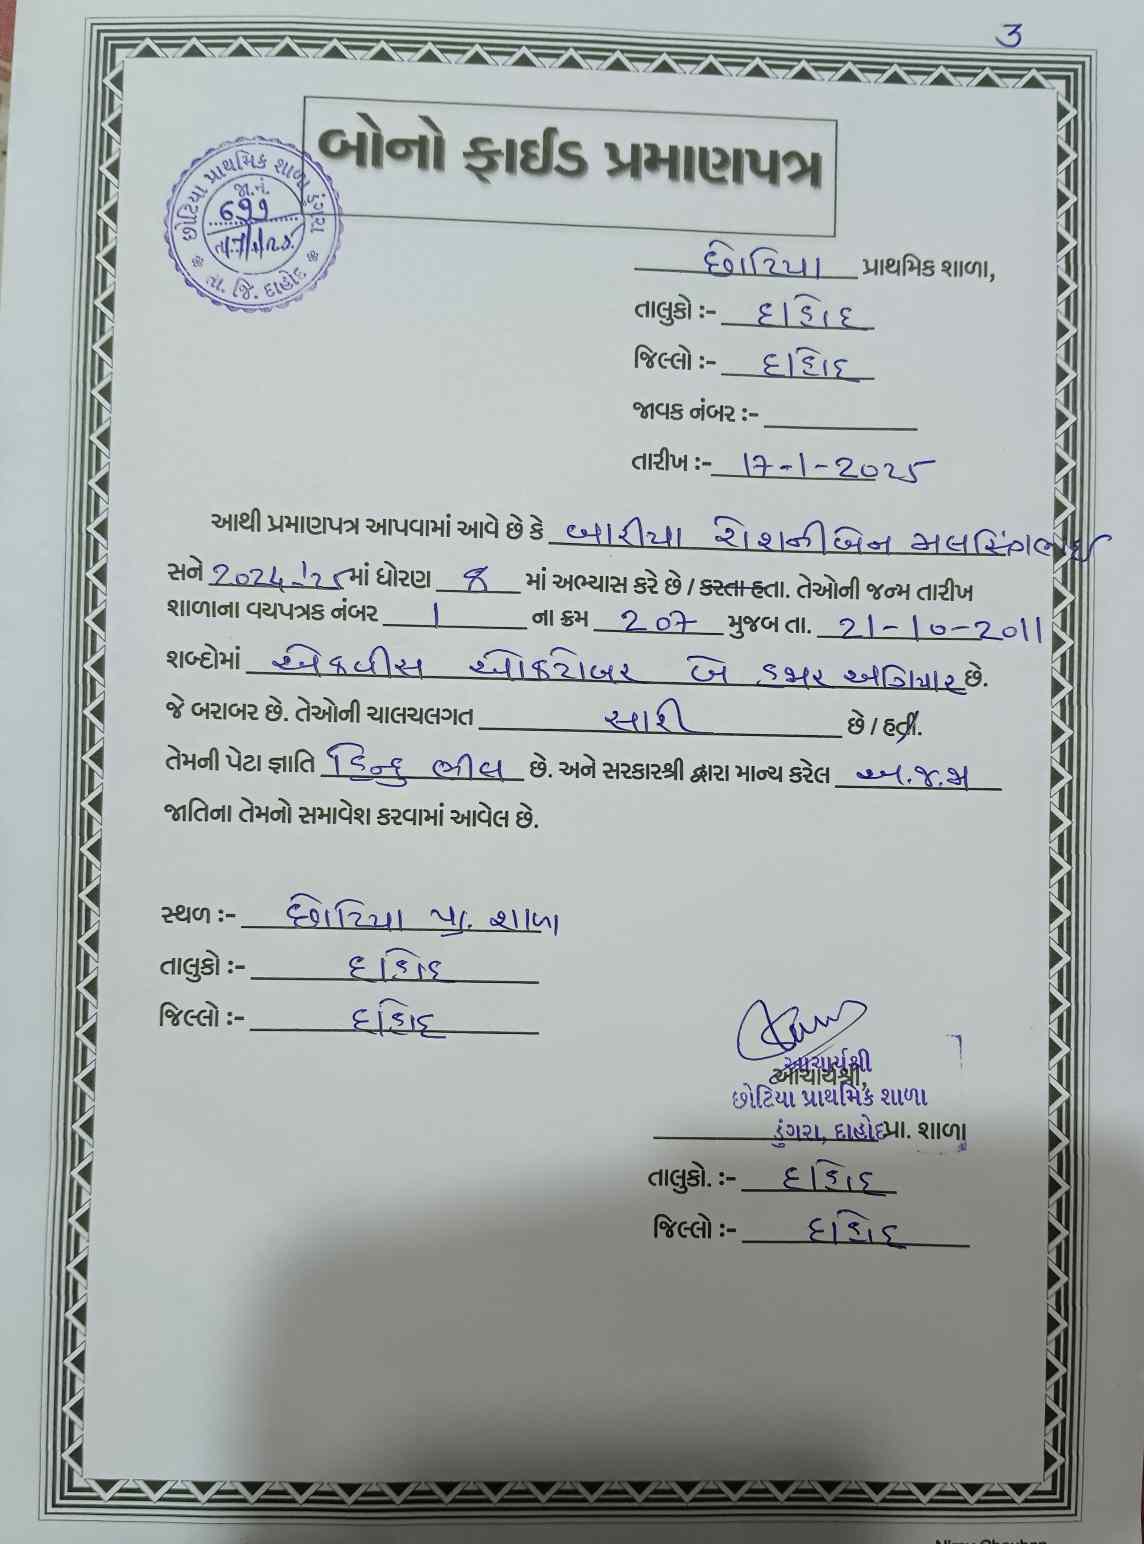 3
બોનો ફાઈડ પ્રમાણપત્ર
છોટિયા પ્રાથમિક શાળા ડુંગરા
જા.નં.
૬૧૧
તા. જિ. દાહોદ
છોટિયા પ્રાથમિક શાળા,
તાલુકો :- દાહોદ
જિલ્લો :- દાહોદ
જાવક નંબર :-
તારીખ :- 17-1-2025
આથી પ્રમાણપત્ર આપવામાં આવે છે કે બારીયા રોશનીબેન મલસિંગભાઈ
સને 2024-'25 માં ધોરણ ૪ માં અભ્યાસ કરે છે / કરતા હતા. તેઓની જન્મ તારીખ
શાળાના વયપત્રક નંબર 1 ના ક્રમ 207 મુજબ તા. 21-10-2011
શબ્દોમાં એકવીસ ઓક્ટોબર બે હજાર અગિયાર છે.
જે બરાબર છે. તેઓની ચાલચલગત સારી છે / હતી.
તેમની પેટા જ્ઞાતિ હિન્દુ ભીલ છે. અને સરકારશ્રી દ્વારા માન્ય કરેલ અ.જ.જા
જાતિના તેમનો સમાવેશ કરવામાં આવેલ છે.
સ્થળ :- છોટિયા પ્રા. શાળા
તાલુકો :- દાહોદ
જિલ્લો :- દાહોદ
આચાર્યશ્રી
આચાર્યશ્રી,
છોટિયા પ્રાથમિક શાળા
ડુંગરા, દાહોદ પ્રા. શાળા
તાલુકો. :- દાહોદ
જિલ્લો :- દાહોદ